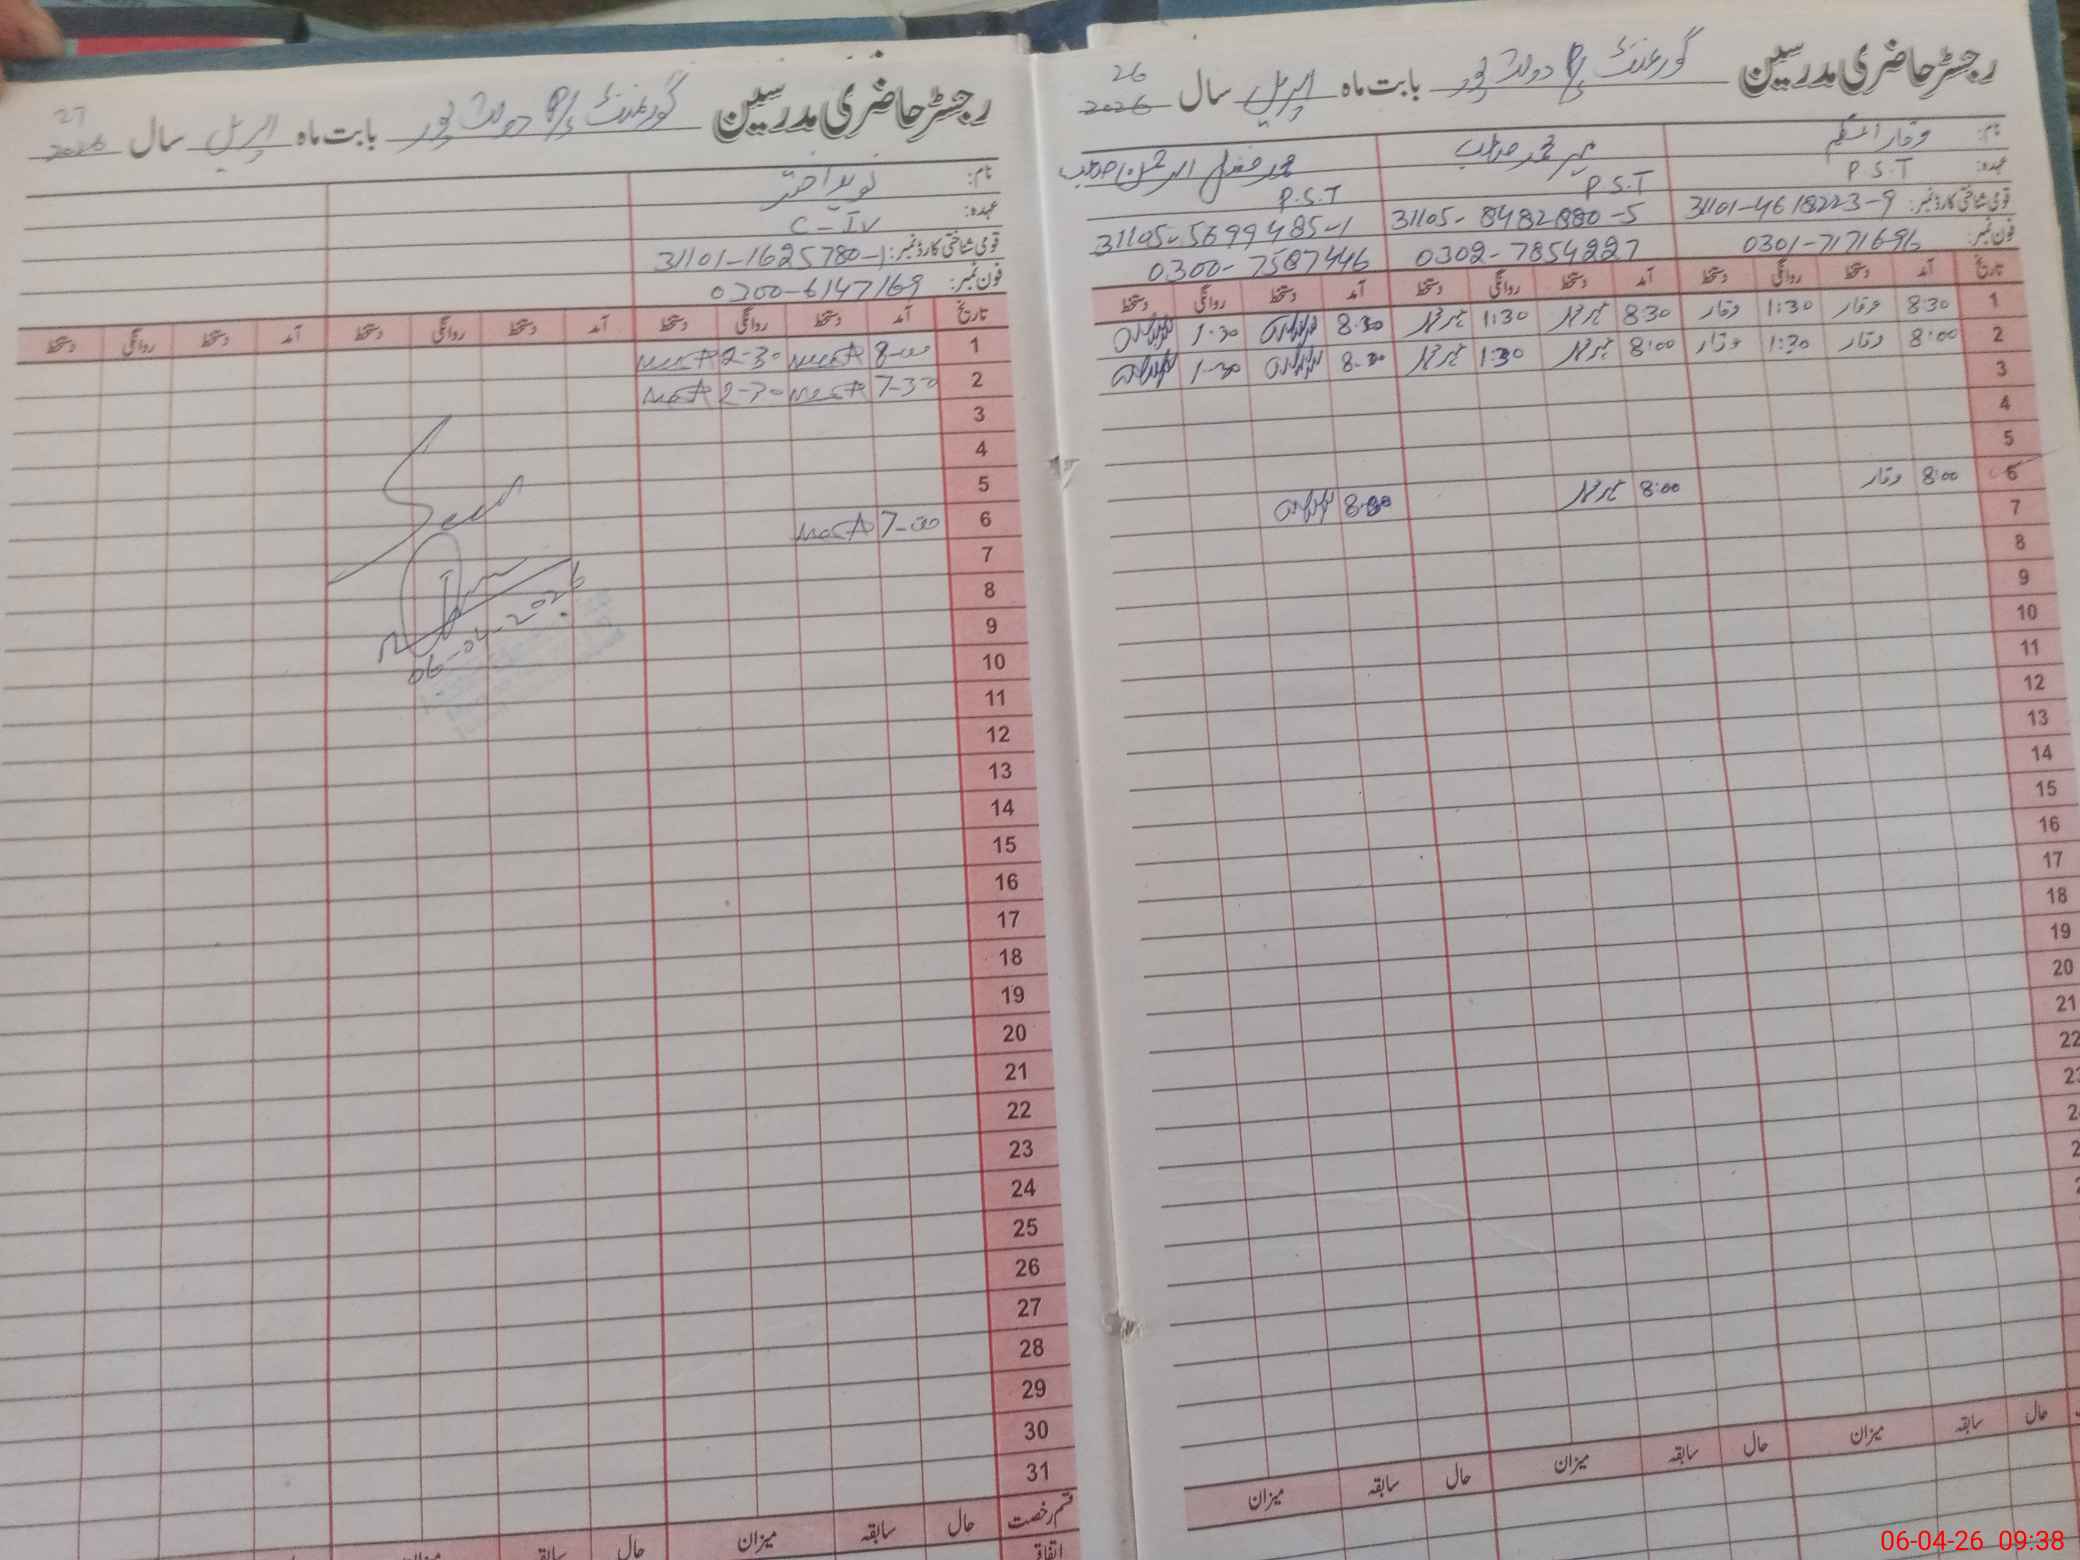 رجسٹر حاضری مدرسین گورنمنٹ P/S دولت پور بابت ماہ اپریل سال 2026
26
نام: وقار اسلم
عہدہ: P.S.T P.S.T P.S.T
قومی شناختی کارڈ نمبر: 31101-4618223-9 31105-8482880-5 31105-5699485-1
فون نمبر: 0301-7171696 0302-7854227 0300-7587446
تاریخ آمد دستخط روانگی دستخط آمد دستخط روانگی دستخط آمد دستخط روانگی دستخط
1 8:30 وقار 1:30 وقار 8:30 1:30 8:30 1-30
2 8:00 وقار 1:30 وقار 8:00 1:30 8:30 1-30
3
4
5
6 8:00 وقار 8:00 8:00
7
8
9
10
11
12
13
14
15
16
17
18
19
20
21
22
23
حال سابقہ میزان حال سابقہ میزان حال سابقہ میزان
رجسٹر حاضری مدرسین گورنمنٹ P/S دولت پور بابت ماہ اپریل سال 2026
27
نام: نوید اختر
عہدہ: C-IV
قومی شناختی کارڈ نمبر: 31101-1625780-1
فون نمبر: 0300-6147169
تاریخ آمد دستخط روانگی دستخط آمد دستخط روانگی دستخط آمد دستخط روانگی دستخط
1 8-00 2-30
2 7-30 2-30
3
4
5
6 7-00
7
8
9
10
11
12
13
14
15
16
17
18
19
20
21
22
23
24
25
26
27
28
29
30
31
Seen
06-04-2026
قسم رخصت حال سابقہ میزان حال سابقہ میزان
اتفاقیہ
06-04-26 09:38